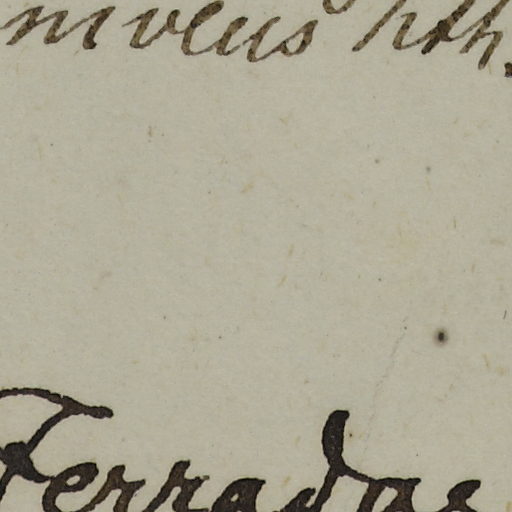 niveus hth.
Ferradas